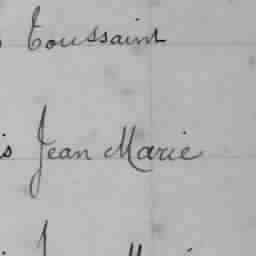 Toussaint
is Jean Marie